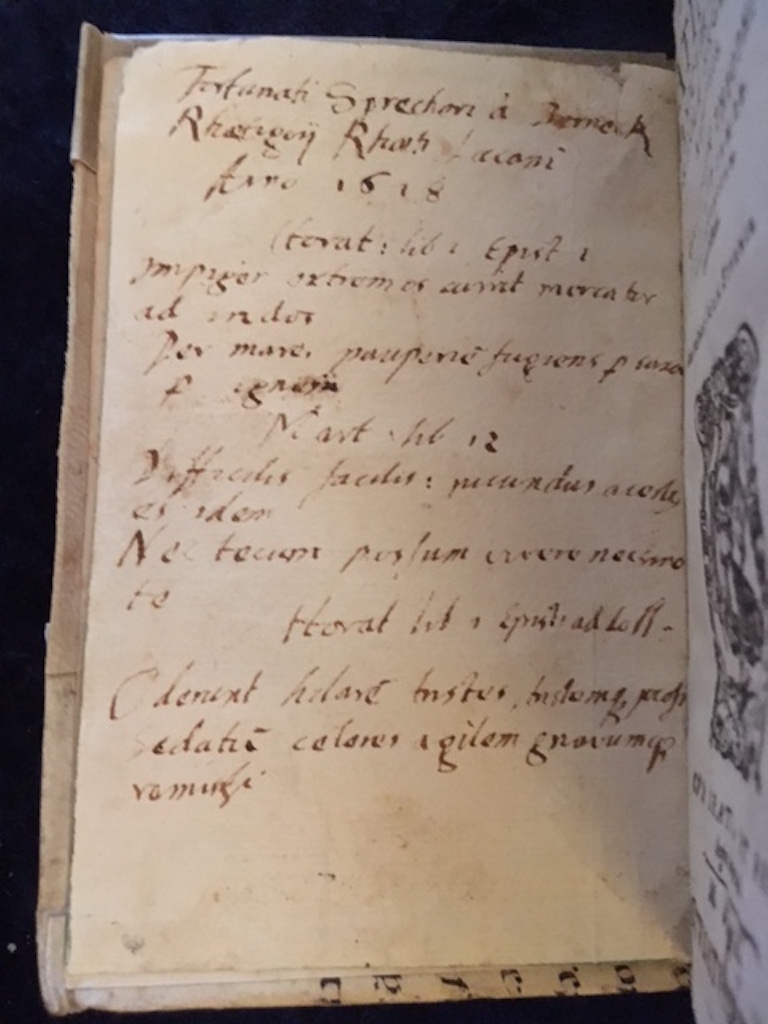 Fortunati Sprecheri à Berneck
Rhætigoij Rhæti
Anno 1618
Horat: lib 1 Epist 1
Impiger extremos currit mercator
ad indos
Per mare, pauperiē fugiens p saxa
p ignem
Mart. lib 12
Difficilis facilis: iucundus acerbus
es idem
Nec tecum possum vivere nec sine
te
Horat lib 1 Epist: ad Loll.
Oderunt hilarē tristes, tristemq,
sedatū celeres agilem gnavumq
remissi